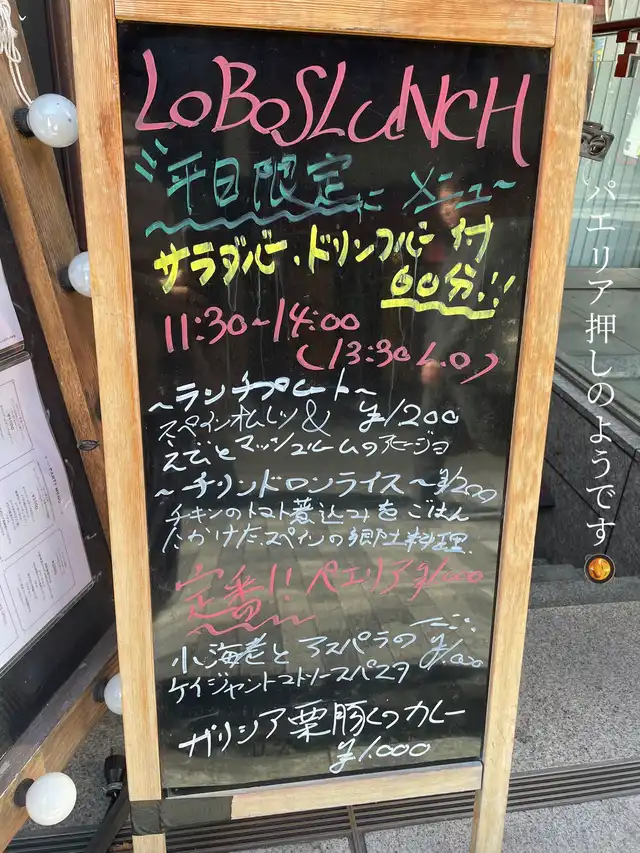 LOBOS LUNCH
平日限定 メニュー
サラダバー・ドリンクバー付
60分!!
11:30~14:00
(13:30 L.O)
~ランチプレート~
スペインオムレツ& ¥1200
えびとマッシュルームのアヒージョ
~チリンドロンライス~ ¥1200
チキンのトマト煮込みをごはん
にかけたスペインの郷土料理
定番!! パエリア ¥1,000
小海老とアスパラの ¥1,000
ケイジャントマトソースパスタ
ガリシア栗豚くのカレー
¥1,000
パエリア押しのようです🥘